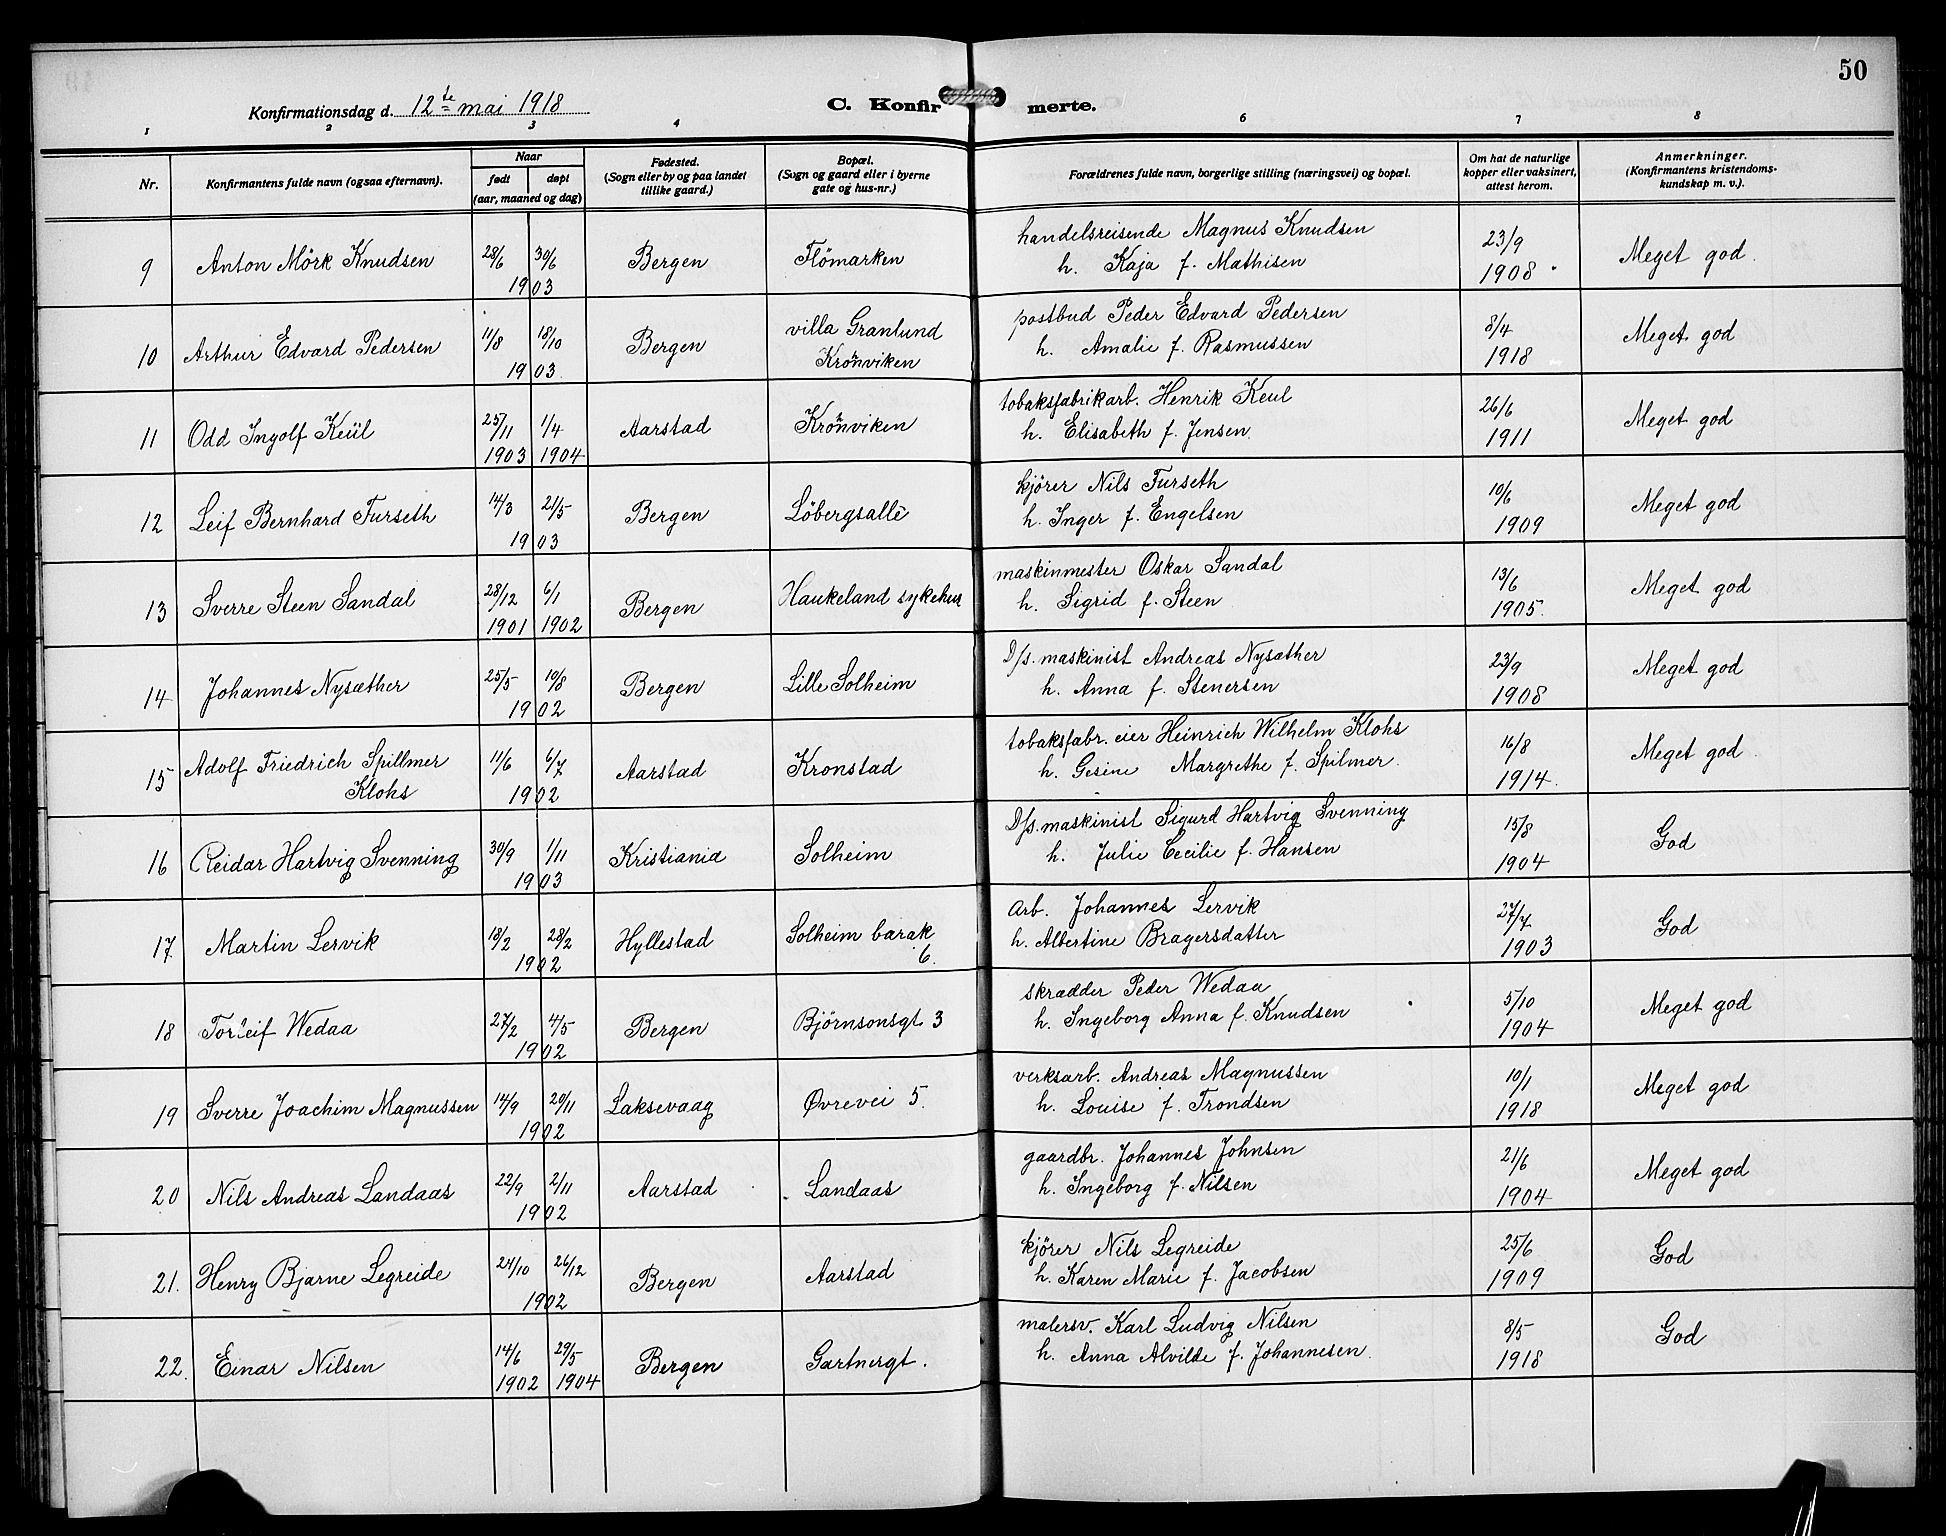 50
Konfirmationsdag d. 12te mai 1918
C. Konfirmerte.
1 2 3 4 6 7 8
Nr.
Konfirmantens fulde navn (ogsaa efternavn).
Naar
født døpt
(aar, maaned og dag)
Fødested.
(Sogn eller by og paa landet
tillike gaard.)
Bopæl.
(Sogn og gaard eller i byerne
gate og hus-nr.)
Forældrenes fulde navn, borgerlige stilling (næringsvei) og bopæl.
Om hat de naturlige
kopper eller vaksinert,
attest herom.
Anmerkninger.
(Konfirmantens kristendoms-
kundskap m. v.).
9 Anton Mörk Knudsen 28/6 30/6 1903 Bergen Flömarken handelsreisende Magnus Knudsen
h. Kaja f. Mathisen 23/9 1908. Meget god.
10 Arthur Edvard Pedersen 11/8 18/10 1903. Bergen villa Granlund
Krönviken postbud Peder Edvard Pedersen
h. Amalie f. Rasmussen 8/4 1918 Meget god
11 Odd Ingolf Keül 25/11 1903 1/4 1904 Aarstad Krönviken tobaksfabrikarb. Henrik Keul
h. Elisabeth f. Jensen. 26/6 1911 Meget god
12 Leif Bernhard Furseth 14/3 21/5 1903 Bergen Löbergsallè kjörer Nils Furseth
h. Inger f. Engelsen 10/6 1909 Meget god
13 Sverre Steen Sandal 28/12 1901 6/1 1902 Bergen Haukeland sykehus maskinmester Oskar Sandal
h. Sigrid f. Steen 13/6 1905. Meget god
14 Johannes Nysæther 25/5 10/8 1902 Bergen Lille Solheim D/s. maskinist Andreas Nysæther
h. Anna f. Stenersen 23/9 1908 Meget god
15 Adolf Friedrich Spillmer
Klohs 11/6 6/7 1902 Aarstad Kronstad tobaksfabr. eier Heinrich Wilhelm Klohs
h. Gesine Margrethe f. Spilmer. 16/8 1914. Meget god
16 Reidar Hartvig Svenning 30/9 1/11 1903 Kristiania Solheim D/s. maskinist Sigurd Hartvig Svenning
h. Julie Cecilie f. Hansen 15/8 1904 God
17 Martin Lervik 18/2 28/2 1902 Hyllestad Solheim barak
6. arb. Johannes Lervik
h. Albertine Bragersdatter 27/7 1903 God
18 Torleif Wedaa 27/2 4/5 1902 Bergen Björnsonsgt 3 skrædder Peder Wedaa
h. Ingeborg Anna f. Knudsen 5/10 1904 Meget god
19 Sverre Joachim Magnussen 14/9 20/11 1902 Laksevaag Øvrevei 5. verksarb. Andreas Magnussen
h. Louise f. Trondsen 10/1 1918 Meget god
20 Nils Andreas Landaas 22/9 2/11 1902 Aarstad Landaas gaardbr. Johannes Johnsen
h. Ingeborg f. Nilsen 21/6 1904 Meget god
21. Henry Bjarne Legreide 24/10 26/12 1902 Bergen Aarstad kjörer Nils Legreide
h. Karen Marie f. Jacobsen 25/6 1909 God
22. Einar Nilsen 14/6 1902 29/5 1904 Bergen Gartnergt. malersv. Karl Ludvig Nilsen
h. Anna Alvilde f. Johannesen. 8/5 1918 God